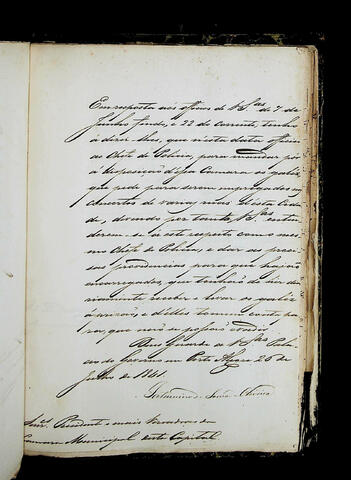 Em resposta aos officios de V. Sas. de 7 de
Junho findo, e 22 do corrente tenho
á dizer-lhes, que n'esta data officio
ao Chefe de Policia, para mandar pôr
á disposição d'essa Camara os galés
que pede para serem empregados nos
concertos de varias ruas d'esta Cida-
de, devendo por tanto V. Sas. enten-
derem-se a este respeito com o mes-
mo Chefe de Policia, e dar as preci-
sas providencias para que haja
encarregados, que tenhão de dia-
riamente receber e levar os galés
e d'elles tomem conta
para, que não se possão evadir.
Deus Guarde a V. Sas. Pala-
cio do Governo em Porto Alegre 26 de
Julho de 1841.
Snres. Presidente e mais Vereadores da
Camara Municipal desta Capital